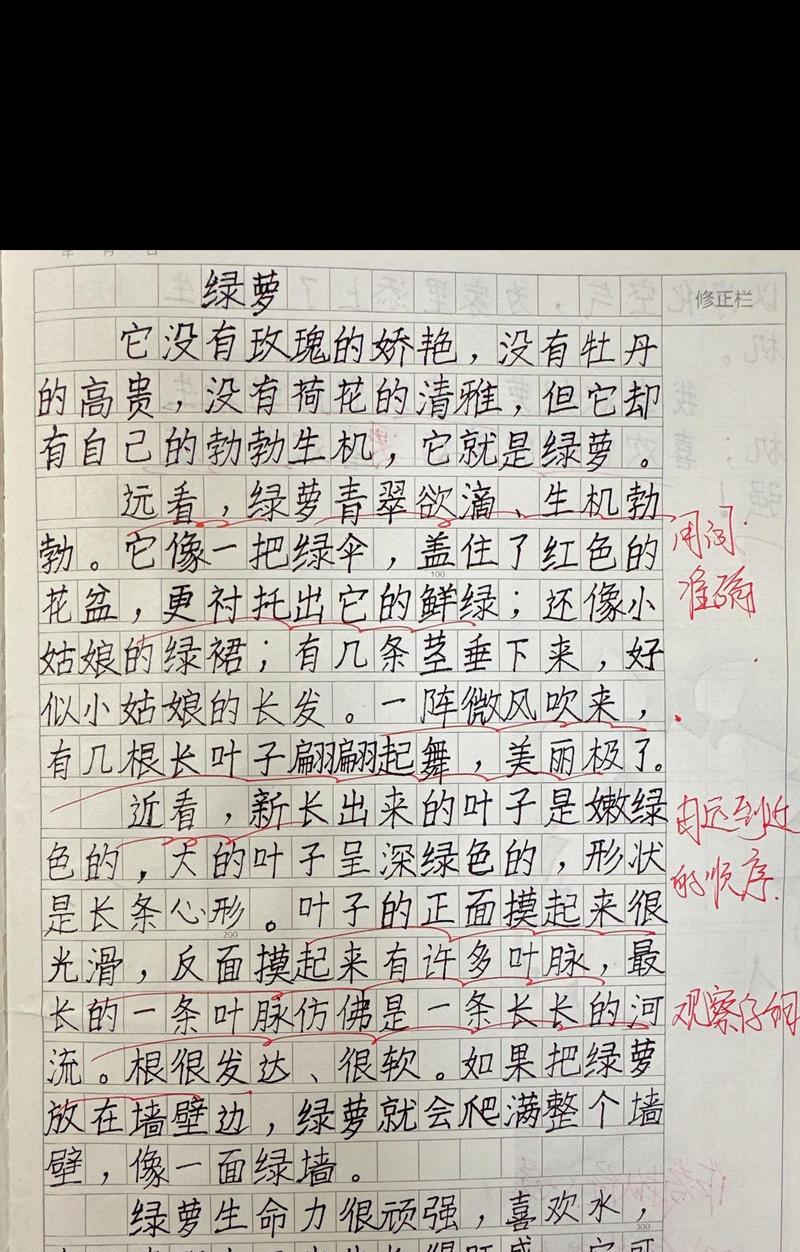 绿萝
修正栏
它没有玫瑰的娇艳，没有牡丹
的高贵，没有荷花的清雅，但它却
有自己的勃勃生机，它就是绿萝。
远看，绿萝青翠欲滴、生机勃
勃。它像一把绿伞，盖住了红色的
100
花盆，更衬托出它的鲜绿；还像小
姑娘的绿裙；有几条茎垂下来，好
似小姑娘的长发。一阵微风吹来，
有几根长叶子翩翩起舞，美丽极了。
近看，新长出来的叶子是嫩绿
色的，大的叶子呈深绿色的，形状
是长条心形。叶子的正面摸起来很
200
光滑，反面摸起来有许多叶脉，最
长的一条叶脉仿佛是一条长长的河
流。根很发达、很软。如果把绿萝
放在墙壁边，绿萝就会爬满整个墙
壁，像一面绿墙。
绿萝生命力很顽强，喜欢水，
300
用词
准确
由远到近
的顺序.
观察仔细